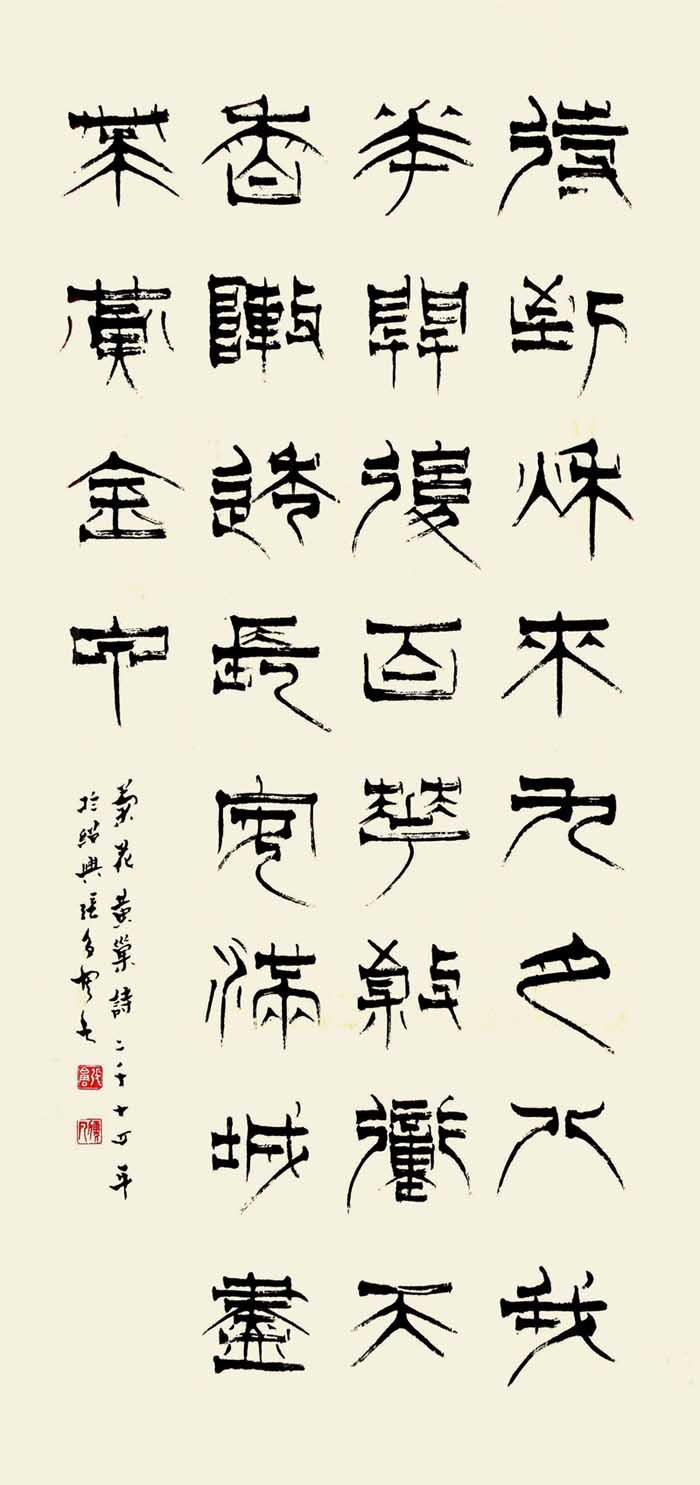 待到秌來九月八我
華開後百華殺衝天
香敶透長安滿城盡
帶黃金甲
菊花黃巢詩二千十五年
於紹興張